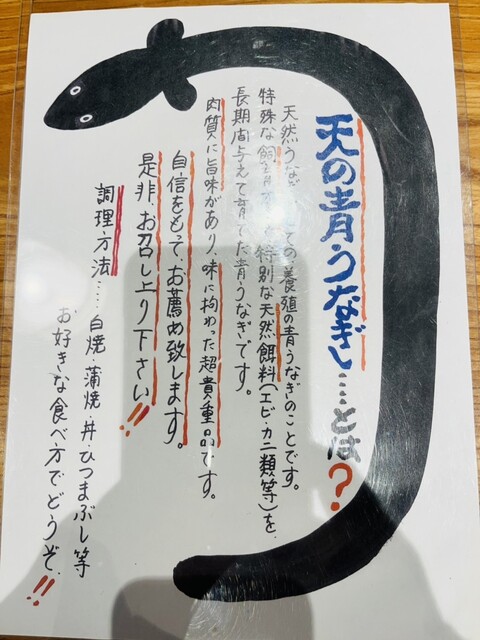 天の青うなぎ……とは？
天然うなぎ ての養殖の青うなぎのことです。
特殊な飼育 特別な天然餌料(エビ・カニ類等)を、
長期間与えて育てた青うなぎです。
肉質に旨味があり、味に拘わった超貴重品です。
自信をもってお薦め致します。
是非、お召し上り下さい!!
調理方法……白焼・蒲焼・丼・ひつまぶし等
お好きな食べ方でどうぞ!!